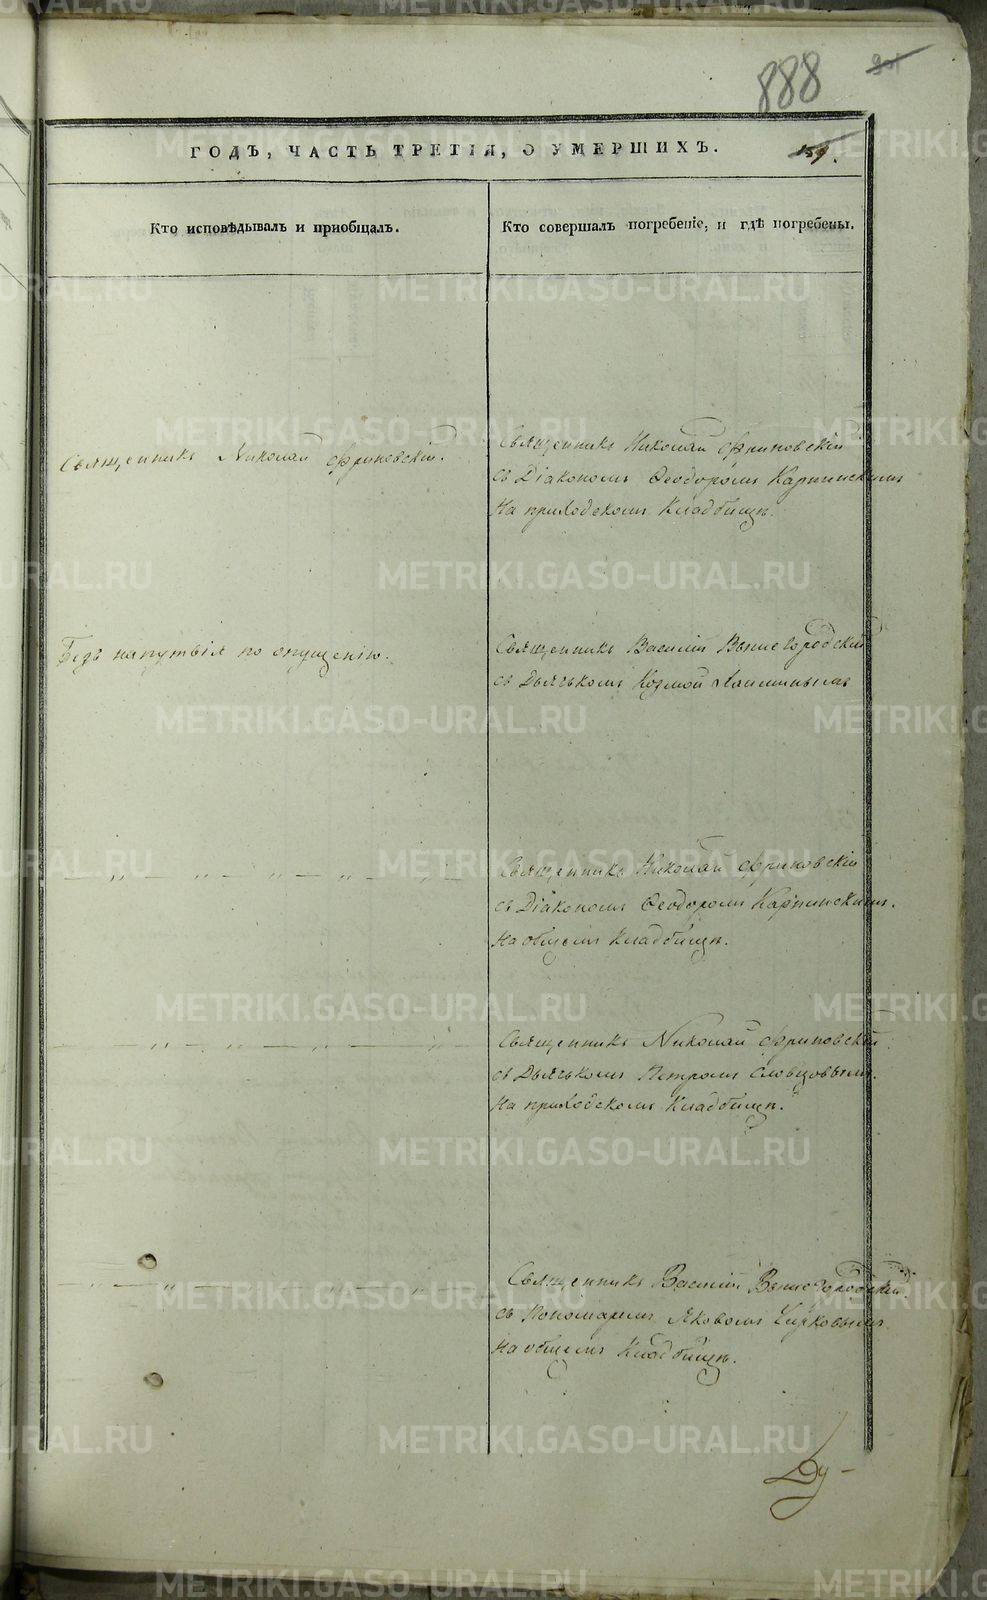 888
ГОДЪ, ЧАСТЬ ТРЕТІЯ, О УМЕРШИХЪ.
159.
Кто исповѣдывалъ и пріобщалъ.
Кто совершалъ погребеніе, и гдѣ погребены.
Священникъ Николай Фриновскій.
Священникъ Николай Фриновскій
съ Діакономъ Феодоромъ Карпинскимъ
на приходскомъ кладбищѣ.
Безъ напутвія по опущенію.
Священникъ Василій Вышегородскій
съ Дьячькомъ Козмой
Священникъ Николай Фриновскій
съ Діакономъ Феодоромъ Карпинскимъ.
на общемъ кладбищѣ.
Священникъ Николай Фриновскій
съ Дьячькомъ Петромъ Словцовымъ.
на приходскомъ кладбищѣ.
Священникъ Василій Вышегородскій
съ Пономаремъ Яковомъ Чирковымъ
на общемъ кладбищѣ.
Ду-
METRIKI.GASO-URAL.RU